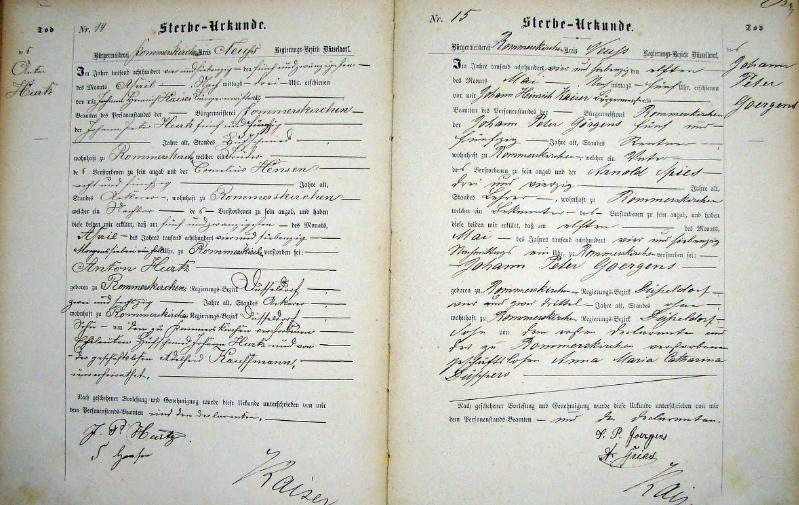 Tod
des
Anton
Hurtz
Nr. 14
Sterbe-Urkunde.
Bürgermeisterei Rommerskirchen Kreis Neuss Regierungs-Bezirk Düsseldorf.
Im Jahre tausend achthundert vier und siebenzig den fünf und zwanzigsten
des Monats April Nachmittags drei Uhr, erschienen
vor mir Johann Heinrich Kaiser Bürgermeister
Beamten des Personenstands der Bürgermeisterei Rommerskirchen
der
Jahre alt, Standes
wohnhaft zu Rommerskirchen welcher ein Bruder
des Verstorbenen zu sein angab und der Cornelius Hensen
acht und fünfzig Jahre alt,
Standes Ackerer, wohnhaft zu Rommerskirchen
welcher ein Nachbar des Verstorbenen zu sein angab, und haben
diese beiden mir erklärt, daß am fünf und zwanzigsten des Monats
April des Jahres tausend achthundert vier und siebenzig
Morgens sieben ein halb Uhr, zu Rommerskirchen verstorben sei:
Anton Hurtz
geboren zu Rommerskirchen Regierungs-Bezirk Düsseldorf
zwei und sechzig Jahre alt, Standes Ackerer
wohnhaft zu Rommerskirchen Regierungs-Bezirk Düsseldorf
Sohn von dem zu Rommerskirchen verstorbenen
Hurtz und von
der geschäftslosen Adelheid Kauffmann,
unverheirathet.
Nach geschehener Vorlesung und Genehmigung wurde diese Urkunde unterschrieben von mir
dem Personenstands-Beamten und den Declaranten.
J. P. Hurtz
Kaiser
Nr. 15
Sterbe-Urkunde.
Tod
des
Johann
Peter
Goergens
Bürgermeisterei Rommerskirchen Kreis Neuss Regierungs-Bezirk Düsseldorf.
Im Jahre tausend achthundert vier und siebenzig den elften
des Monats Mai Nachmittags fünf Uhr, erschienen
vor mir Johann Heinrich Kaiser Bürgermeister
Beamten des Personenstands der Bürgermeisterei Rommerskirchen
der Johann Peter Görgens fünf und
fünfzig Jahre alt, Standes Rentner
wohnhaft zu Rommerskirchen welcher ein Vater
des Verstorbenen zu sein angab und der Arnold Spies
drei und vierzig Jahre alt,
Standes Lehrer, wohnhaft zu Rommerskirchen
welcher ein Bekannter des Verstorbenen zu sein angab, und haben
diese beiden mir erklärt, daß am elften des Monats
Mai des Jahres tausend achthundert vier und siebenzig
Nachmittags ein Uhr, zu Rommerskirchen verstorben sei:
Johann Peter Goergens
geboren zu Rommerskirchen Regierungs-Bezirk Düsseldorf
vier und zwei drittel Jahre alt, Standes ohne
wohnhaft zu Rommerskirchen Regierungs-Bezirk Düsseldorf
Sohn von dem ersten Declaranten und
der zu Rommerskirchen verstorbenen
geschäftslosen Anna Maria Catharina
Nach geschehener Vorlesung und Genehmigung wurde diese Urkunde unterschrieben von mir
dem Personenstands-Beamten und den Declaranten.
J. P. Joergens
A. Spies
Kais